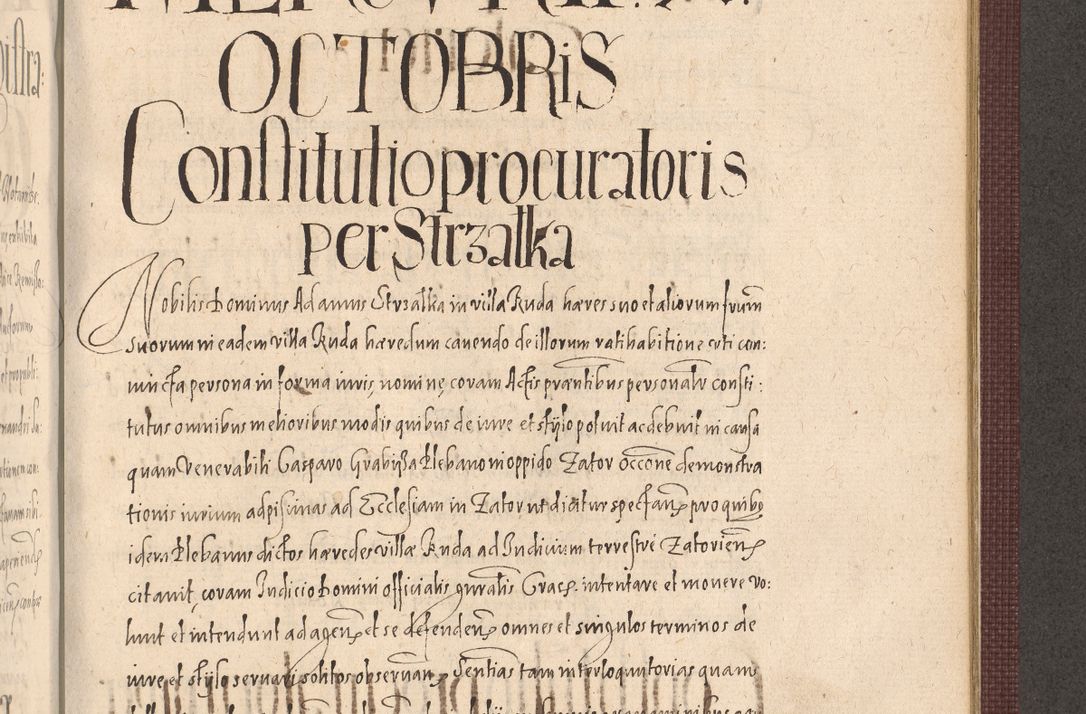 OCTOBRiS
Constitutio procuratoris
per Strzalka
Nobilis Dominus Adamus Strzalka in villa Ruda hæres suo et aliorum frum̄
suorum in eadem villa Ruda hæredum cavendo de illorum ratihabitione uti con:
iuncta persona in forma iuris, nomine, coram Actis præntibus personalr consti:
tutus omnibus melioribus modis quibus de iure et stÿlo potuit ac debuit in causa
quam Venerabili Casparo Grabÿsa Plebano in oppido Zator occōne demonstra
tionis iurium ad piscinas ad Ecclesiam in Zator ut dicitur spectan̄ pro quibɋ
idem Plebanus dictos hæredes villæ Ruda ad Iudicium terrestre Zatorien̄
citavit, coram Iudicio Domini officialis gnralis Crac: intentare et movere vo:
lunt et intendunt ad agen̄ et se defenden̄ omnes et singulos terminos de
iure et stÿlo servari solitos observan̄ Sentias tam interloquutorias quam